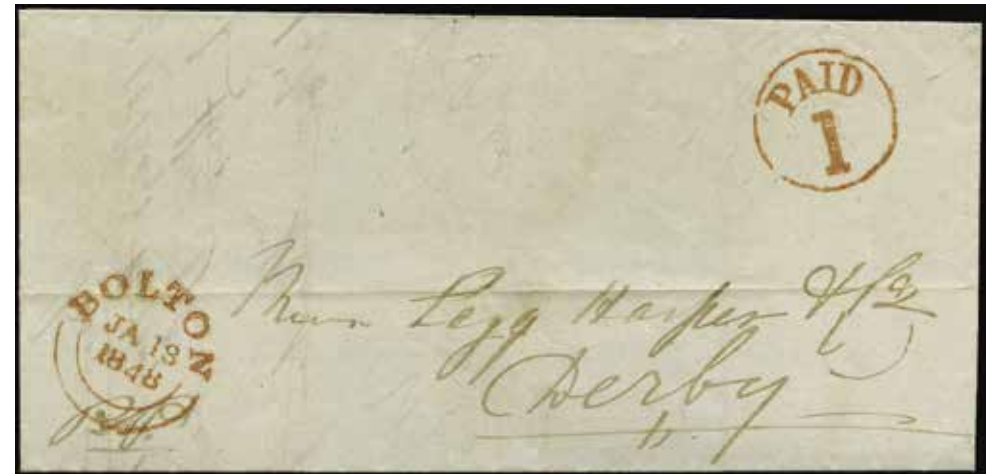 PAID
1
BOLTON
JA 13
1848
Legg Harper & Co
Derby